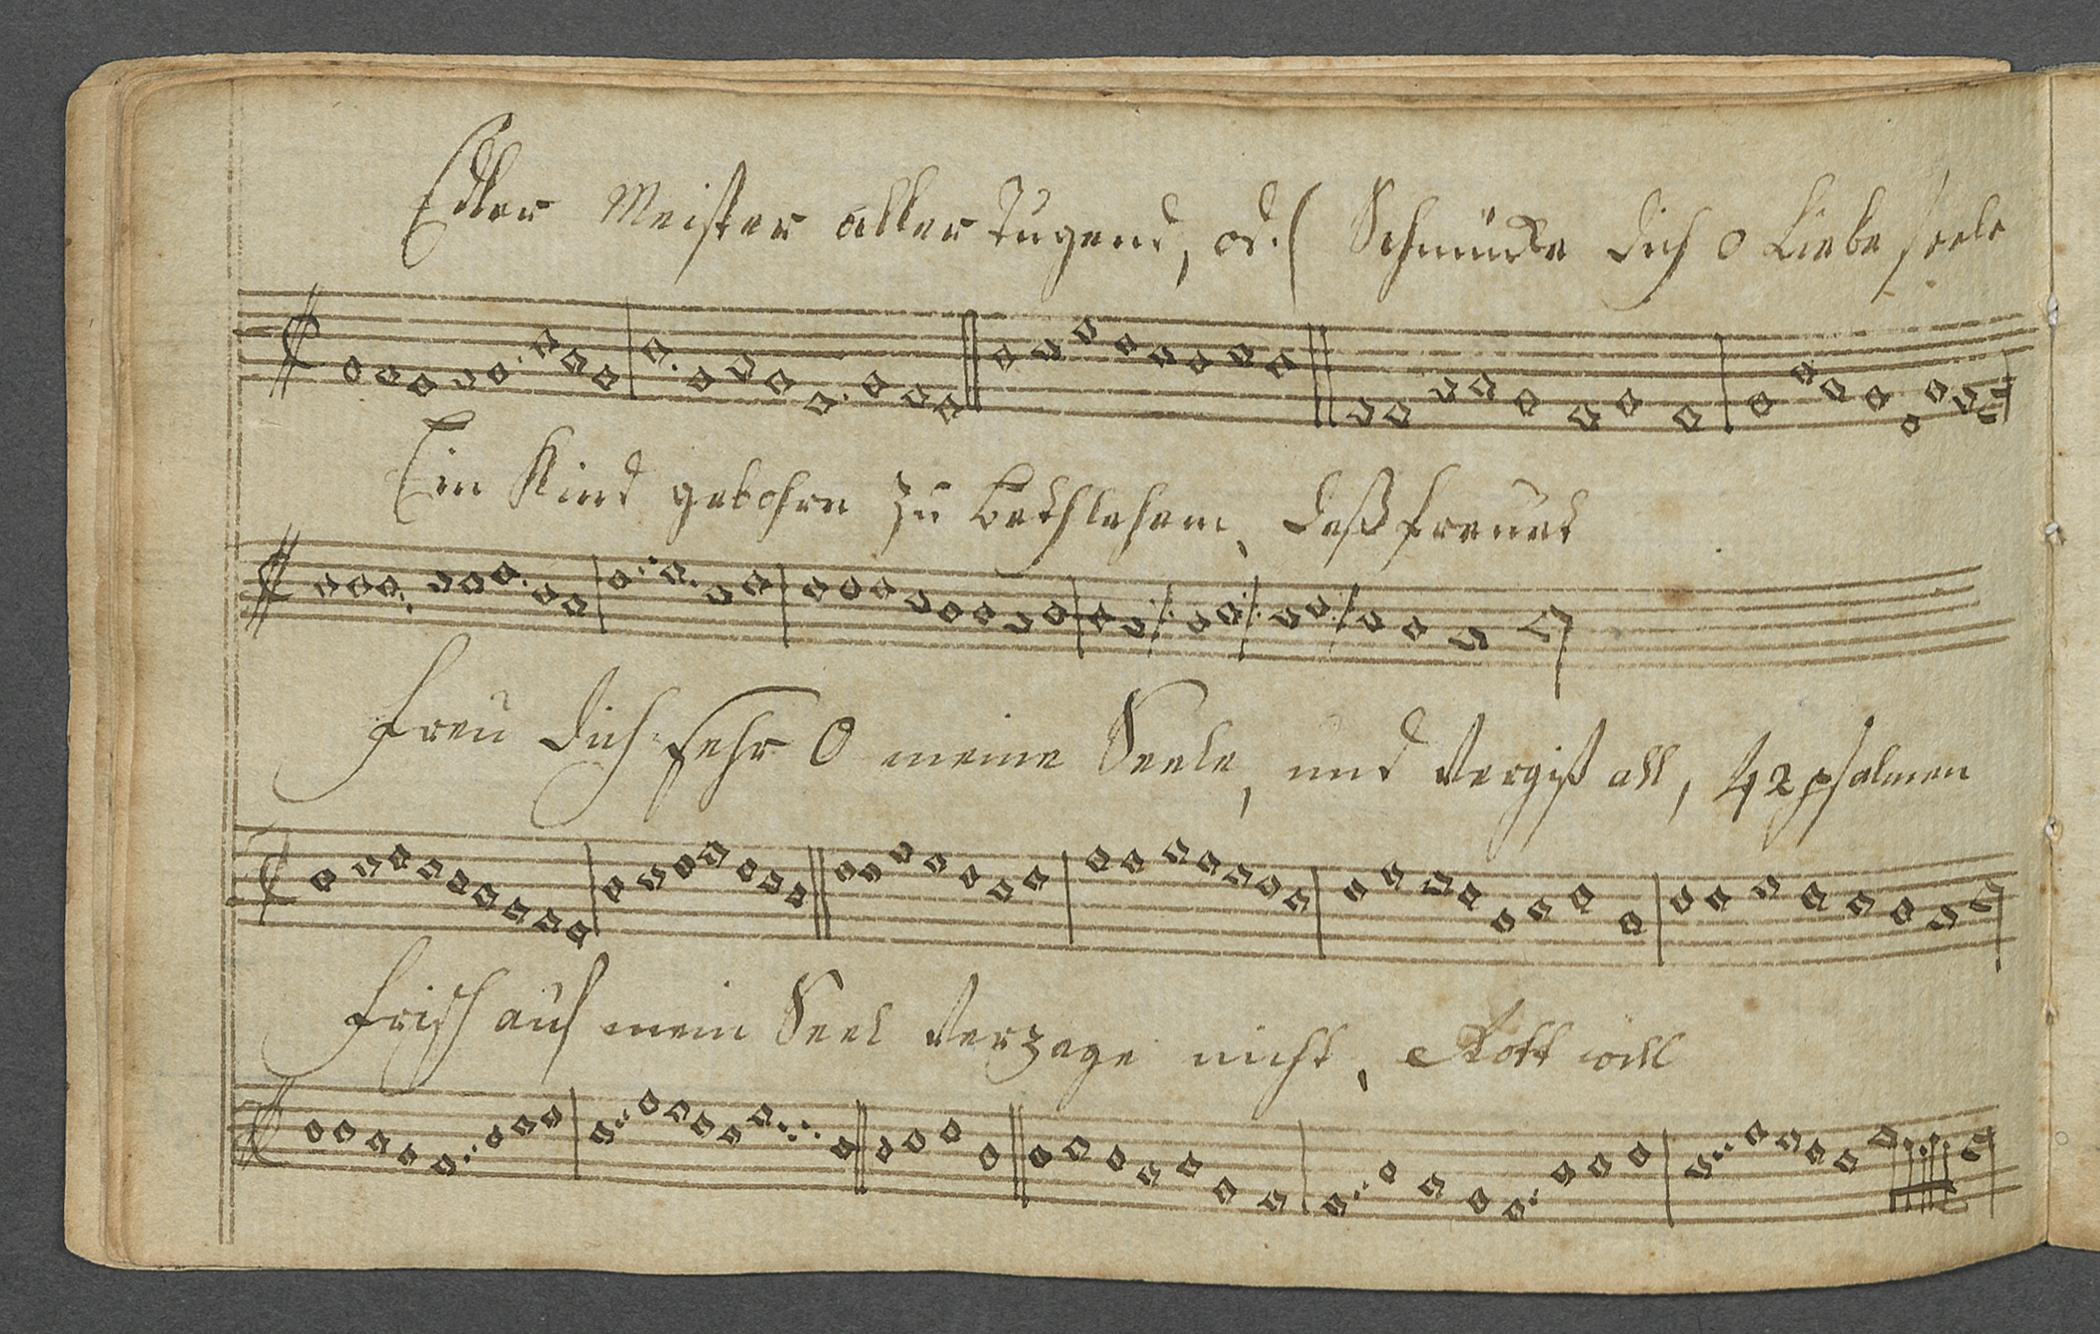 Edler Meister aller Tugend, od.( Schmücke dich o Liebe seele
Ein Kind gebohrn zu Bethlehem, deß freuet
Freu dich sehr O meine Seele, und Vergiß all, 42 psalmen
Frisch auf mein Seel Verzage nicht, Gott will